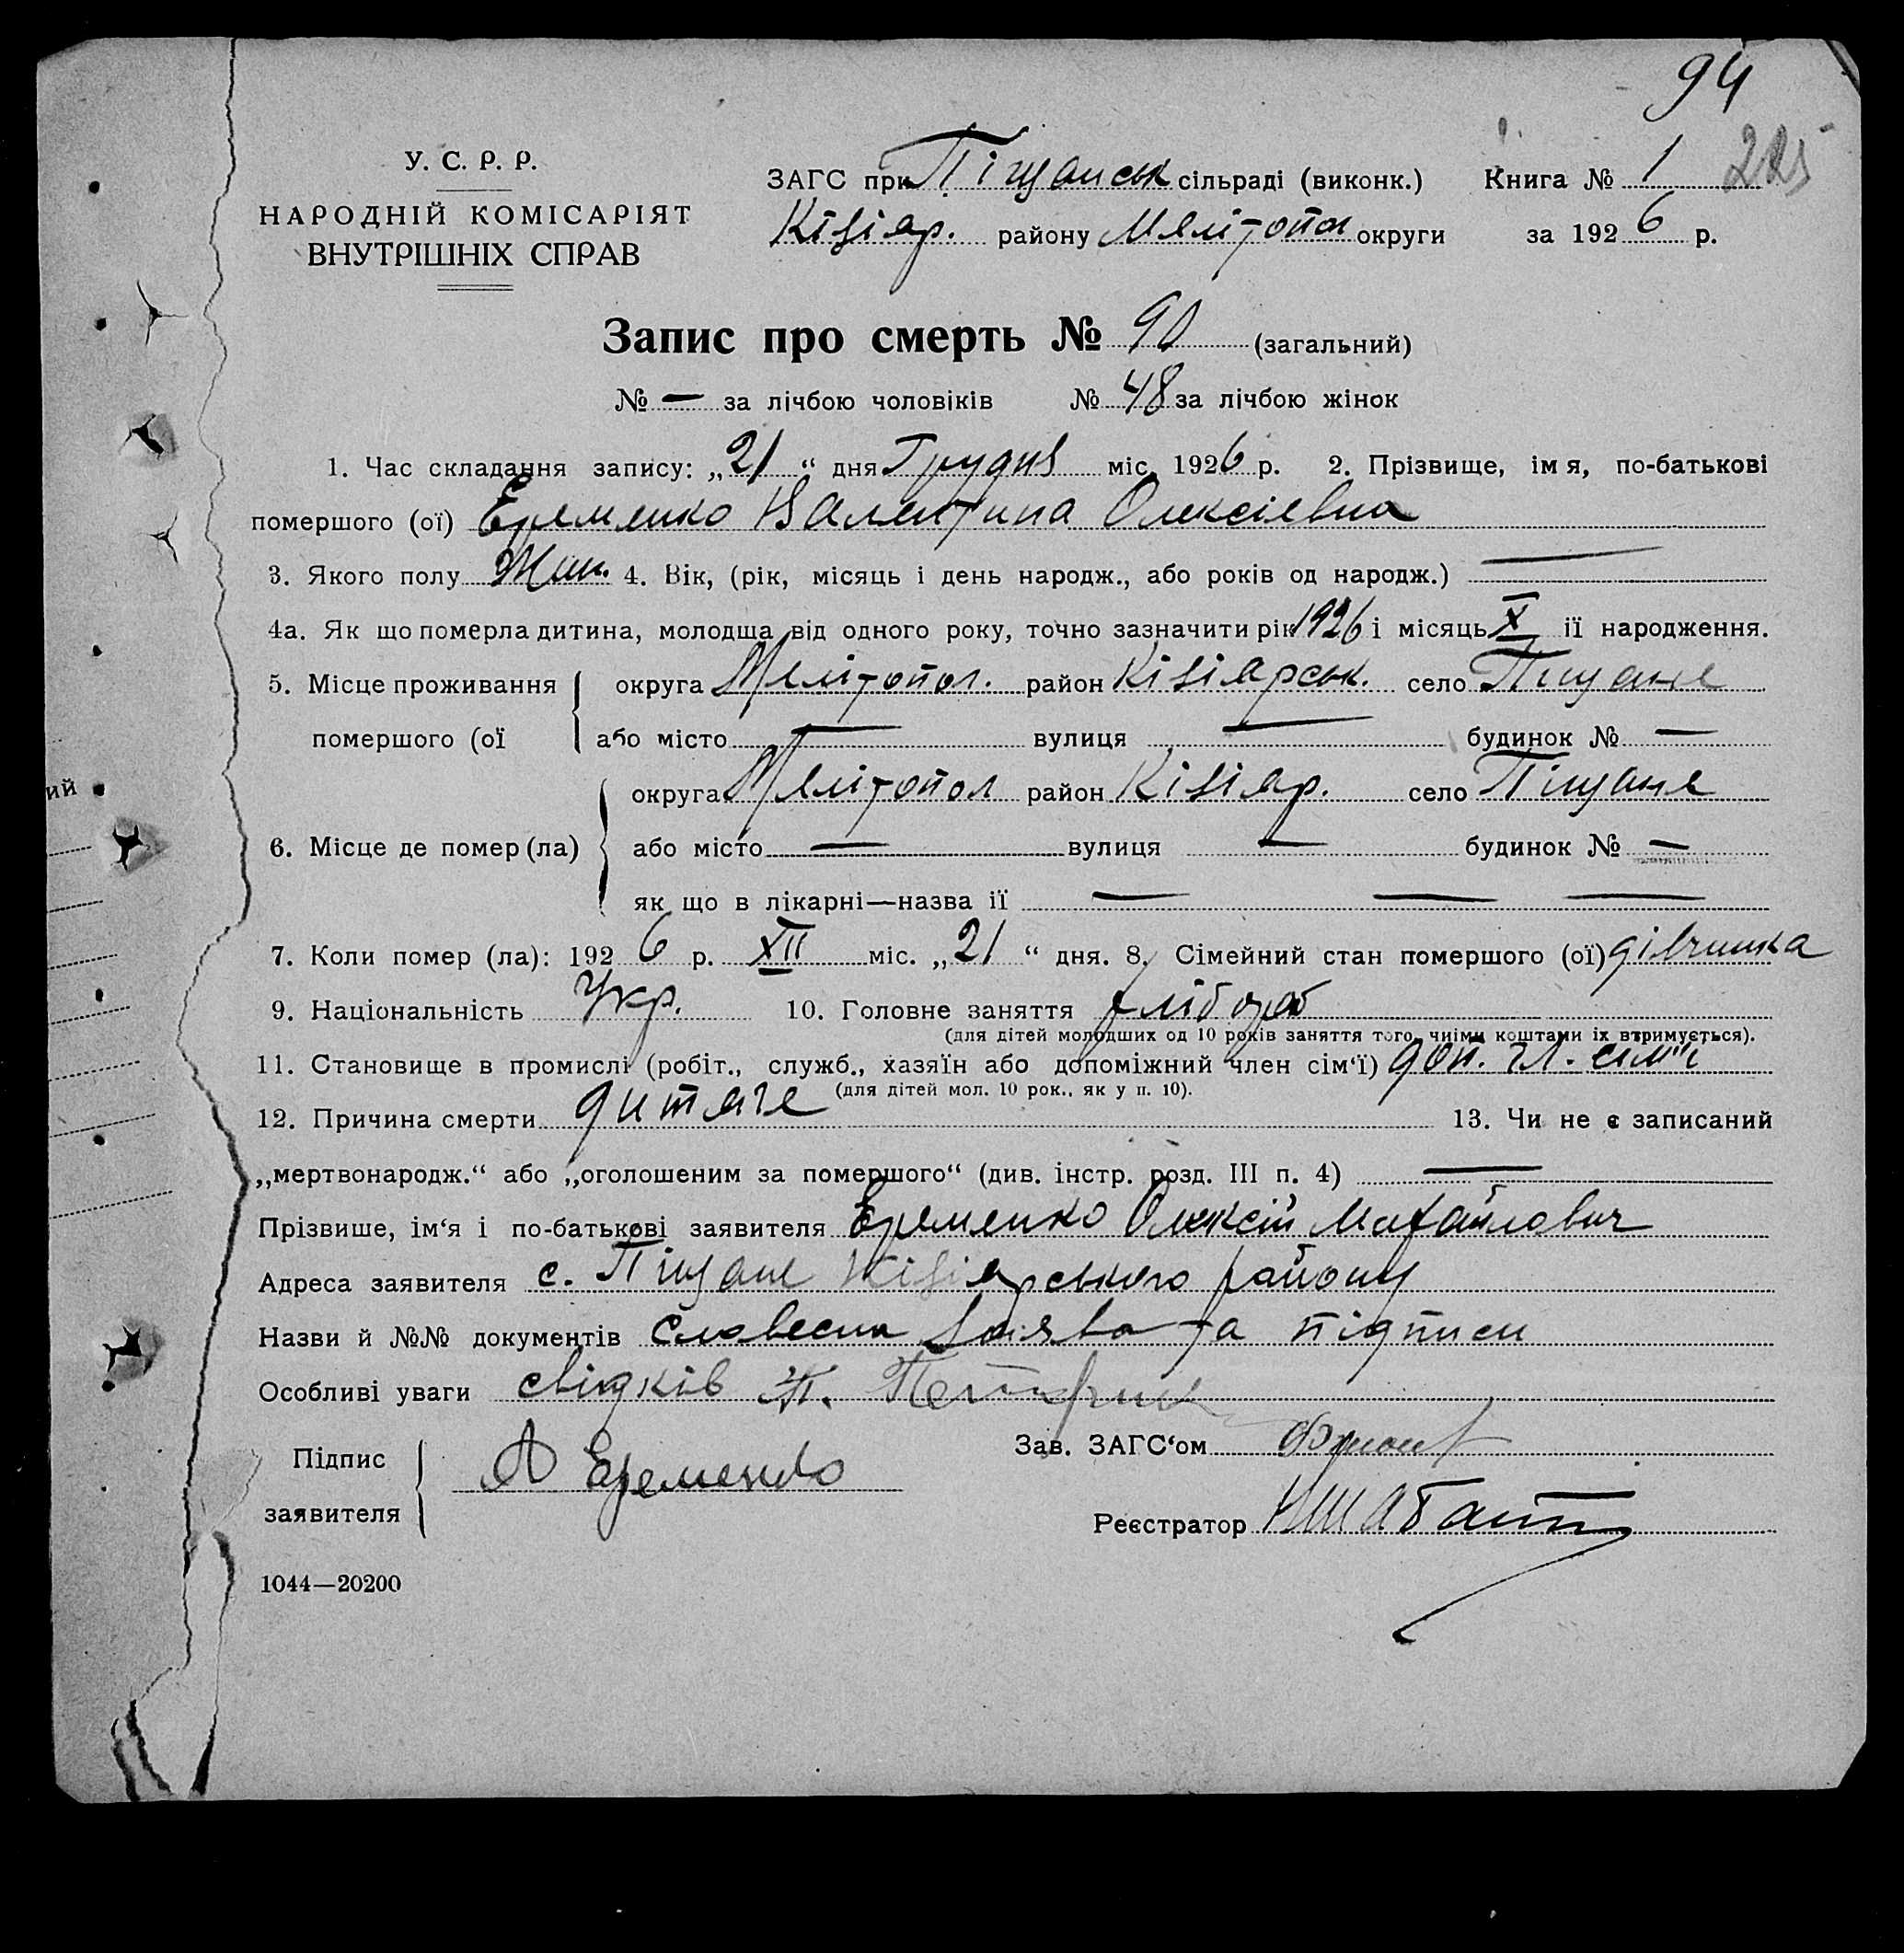 94
У. С. Р. Р.
НАРОДНІЙ КОМІСАРІЯТ
ВНУТРІШНІХ СПРАВ
ЗАГС при Піщанськ сільраді (виконк.) Книга № 1 225
Кізіяр. району Мелітопол округи за 1926 р.
Запис про смерть № 90 (загальний)
№ — за лічбою чоловіків № 48 за лічбою жінок
1. Час складання запису: „21“ дня Грудня міс. 1926 р. 2. Прізвище, імя, по-батькові
помершого (ої) Еременко Валентина Олексіевна
3. Якого полу Жин. 4. Вік, (рік, місяць і день народж., або років од народж.) —
4а. Як що померла дитина, молодща від одного року, точно зазначити рік 1926 і місяць X ії народження.
5. Місце проживання округа Мелітопол. район Кізіярськ. село Піщане
помершого (ої або місто — вулиця — будинок № —
ий
округа Мелітопол район Кізіяр. село Піщане
6. Місце де помер (ла) або місто — вулиця — будинок № —
як що в лікарні—назва ії — — —
7. Коли помер (ла): 1926 р. XII міс. „21“ дня. 8. Сімейний стан помершого (ої) дівчинка
9. Національність Укр. 10. Головне заняття хлібороб
(для дітей молодших од 10 років заняття того, чиїми коштами їх втримується).
11. Становище в промислі (робіт., служб., хазяїн або допоміжний член сім‘ї) доп. чл. сім"ї
(для дітей мол. 10 рок., як у п. 10).
12. Причина смерти дитяче 13. Чи не є записаний
„мертвонародж.“ або „оголошеним за помершого“ (див. інстр. розд. III п. 4) —
Прізвише, ім‘я і по-батькові заявителя Еременко Олексій Михайлович
Адреса заявителя с. Піщане Кізіярського району
Назви й №№ документів Словесна заява та підписи
Особливі уваги свідків
Підпис
заявителя А Еременко
Зав. ЗАГС‘ом
Реєстратор
1044—20200